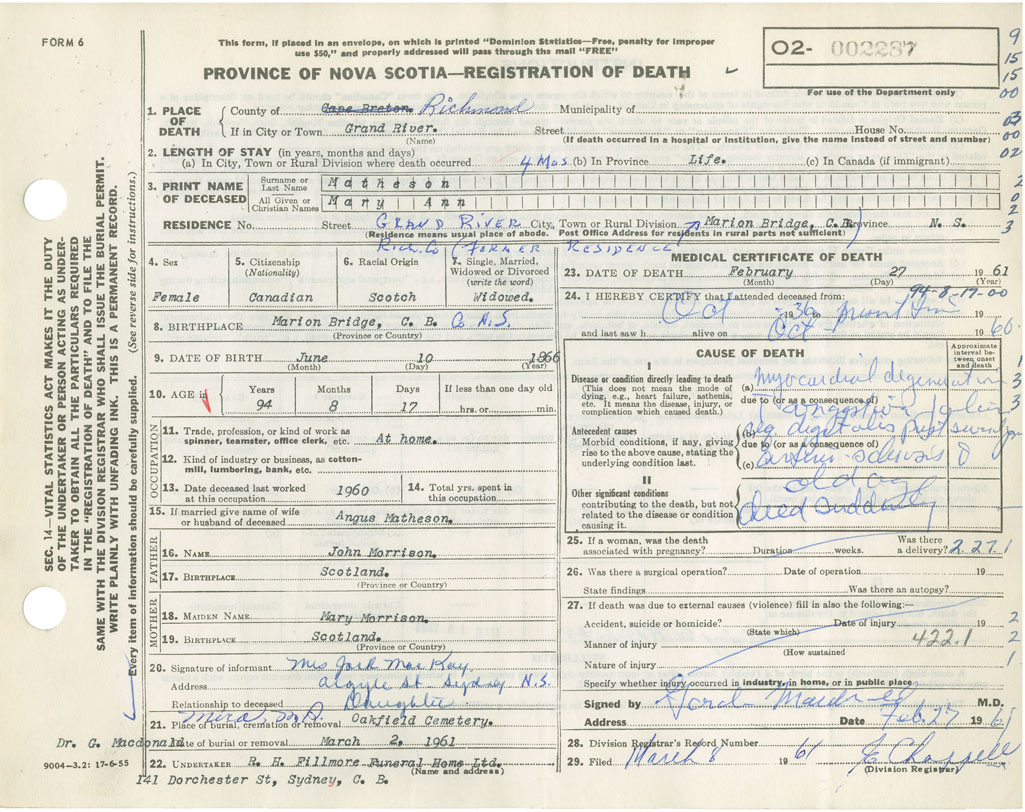 FORM 6
This form, if placed in an envelope, on which is printed "Dominion Statistics—Free, penalty for improper
use $50," and properly addressed will pass through the mail "FREE"
PROVINCE OF NOVA SCOTIA—REGISTRATION OF DEATH
O2- 002287
For use of the Department only
9
15
15
00
03
00
02
2
0
2
3
SEC. 14—VITAL STATISTICS ACT MAKES IT THE DUTY
OF THE UNDERTAKER OR PERSON ACTING AS UNDER-
TAKER TO OBTAIN ALL THE PARTICULARS REQUIRED
IN THE "REGISTRATION OF DEATH" AND TO FILE THE
SAME WITH THE DIVISION REGISTRAR WHO SHALL ISSUE THE BURIAL PERMIT.
WRITE PLAINLY WITH UNFADING INK. THIS IS A PERMANENT RECORD.
Every item of information should be carefully supplied. (See reverse side for instructions.)
1. PLACE OF DEATH
County of Cape Breton. Richmond Municipality of
If in City or Town Grand River. Street House No.
(Name) (If death occurred in a hospital or institution, give the name instead of street and number)
2. LENGTH OF STAY (in years, months and days)
(a) In City, Town or Rural Division where death occurred 4 Mos (b) In Province Life. (c) In Canada (if immigrant)
3. PRINT NAME OF DECEASED
Surname or Last Name Matheson
All Given or Christian Names Mary Ann
RESIDENCE No. Street GRAND RIVER City, Town or Rural Division Marion Bridge, C.B. Province N. S.
(Residence means usual place of abode. Post Office Address for residents in rural parts not sufficient)
Rich. Co (FORMER RESIDENCE)
4. Sex
Female
5. Citizenship (Nationality)
Canadian
6. Racial Origin
Scotch
7. Single, Married, Widowed or Divorced (write the word)
Widowed.
8. BIRTHPLACE Marion Bridge, C. B. Co N.S.
(Province or Country)
9. DATE OF BIRTH June 10 1866
(Month) (Day) (Year)
10. AGE in
Years Months Days If less than one day old
94 8 17 hrs. or min.
OCCUPATION
11. Trade, profession, or kind of work as
spinner, teamster, office clerk, etc. At home.
12. Kind of industry or business, as cotton-
mill, lumbering, bank, etc.
13. Date deceased last worked
at this occupation 1960
14. Total yrs. spent in
this occupation
15. If married give name of wife
or husband of deceased Angus Matheson.
FATHER
16. NAME John Morrison.
17. BIRTHPLACE Scotland.
(Province or Country)
MOTHER
18. MAIDEN NAME Mary Morrison.
19. BIRTHPLACE Scotland.
(Province or Country)
20. Signature of informant Mrs Jack MacKay,
Address Argyle St Sydney N.S.
Relationship to deceased Daughter
21. Place of burial, cremation or removal Oakfield Cemetery.
Date of burial or removal March 2, 1961
Dr. G. Macdonald
22. UNDERTAKER R. H. Fillmore Funeral Home Ltd.
(Name and address)
9004-3.2: 17-6-55
141 Dorchester St, Sydney, C. B.
MEDICAL CERTIFICATE OF DEATH
23. DATE OF DEATH February 27 1961
(Month) (Day) (Year)
94-8-17-00
24. I HEREBY CERTIFY that I attended deceased from:
Oct 1936 to present time 19
and last saw h alive on Oct 1960
CAUSE OF DEATH
Approximate interval between onset and death
I
Disease or condition directly leading to death
(This does not mean the mode of
dying, e.g., heart failure, asthenia,
etc. It means the disease, injury, or
complication which caused death.)
(a) myocardial degeneration
due to (or as a consequence of)
Antecedent causes
Morbid conditions, if any, giving
rise to the above cause, stating the
underlying condition last.
(b) digitalis past several
due to (or as a consequence of)
(c)
II
Other significant conditions
contributing to the death, but not
related to the disease or condition
causing it.
old age
died suddenly
1
3
3
25. If a woman, was the death
associated with pregnancy? Duration weeks. Was there
a delivery? 2.27.1
26. Was there a surgical operation? Date of operation 19
State findings Was there an autopsy?
27. If death was due to external causes (violence) fill in also the following:—
Accident, suicide or homicide? Date of injury 19
(State which)
Manner of injury 422.1
(How sustained
Nature of injury
2
2
1
Specify whether injury occurred in industry, in home, or in public place
Signed by M.D.
Address Date Feb. 27 1961
28. Division Registrar's Record Number
29. Filed March 8 1961
(Division Registrar)